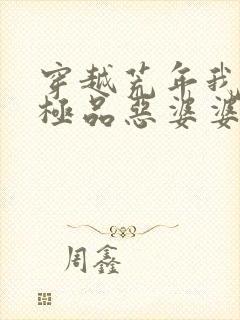 穿越荒年我
極品惡婆婆
周鑫